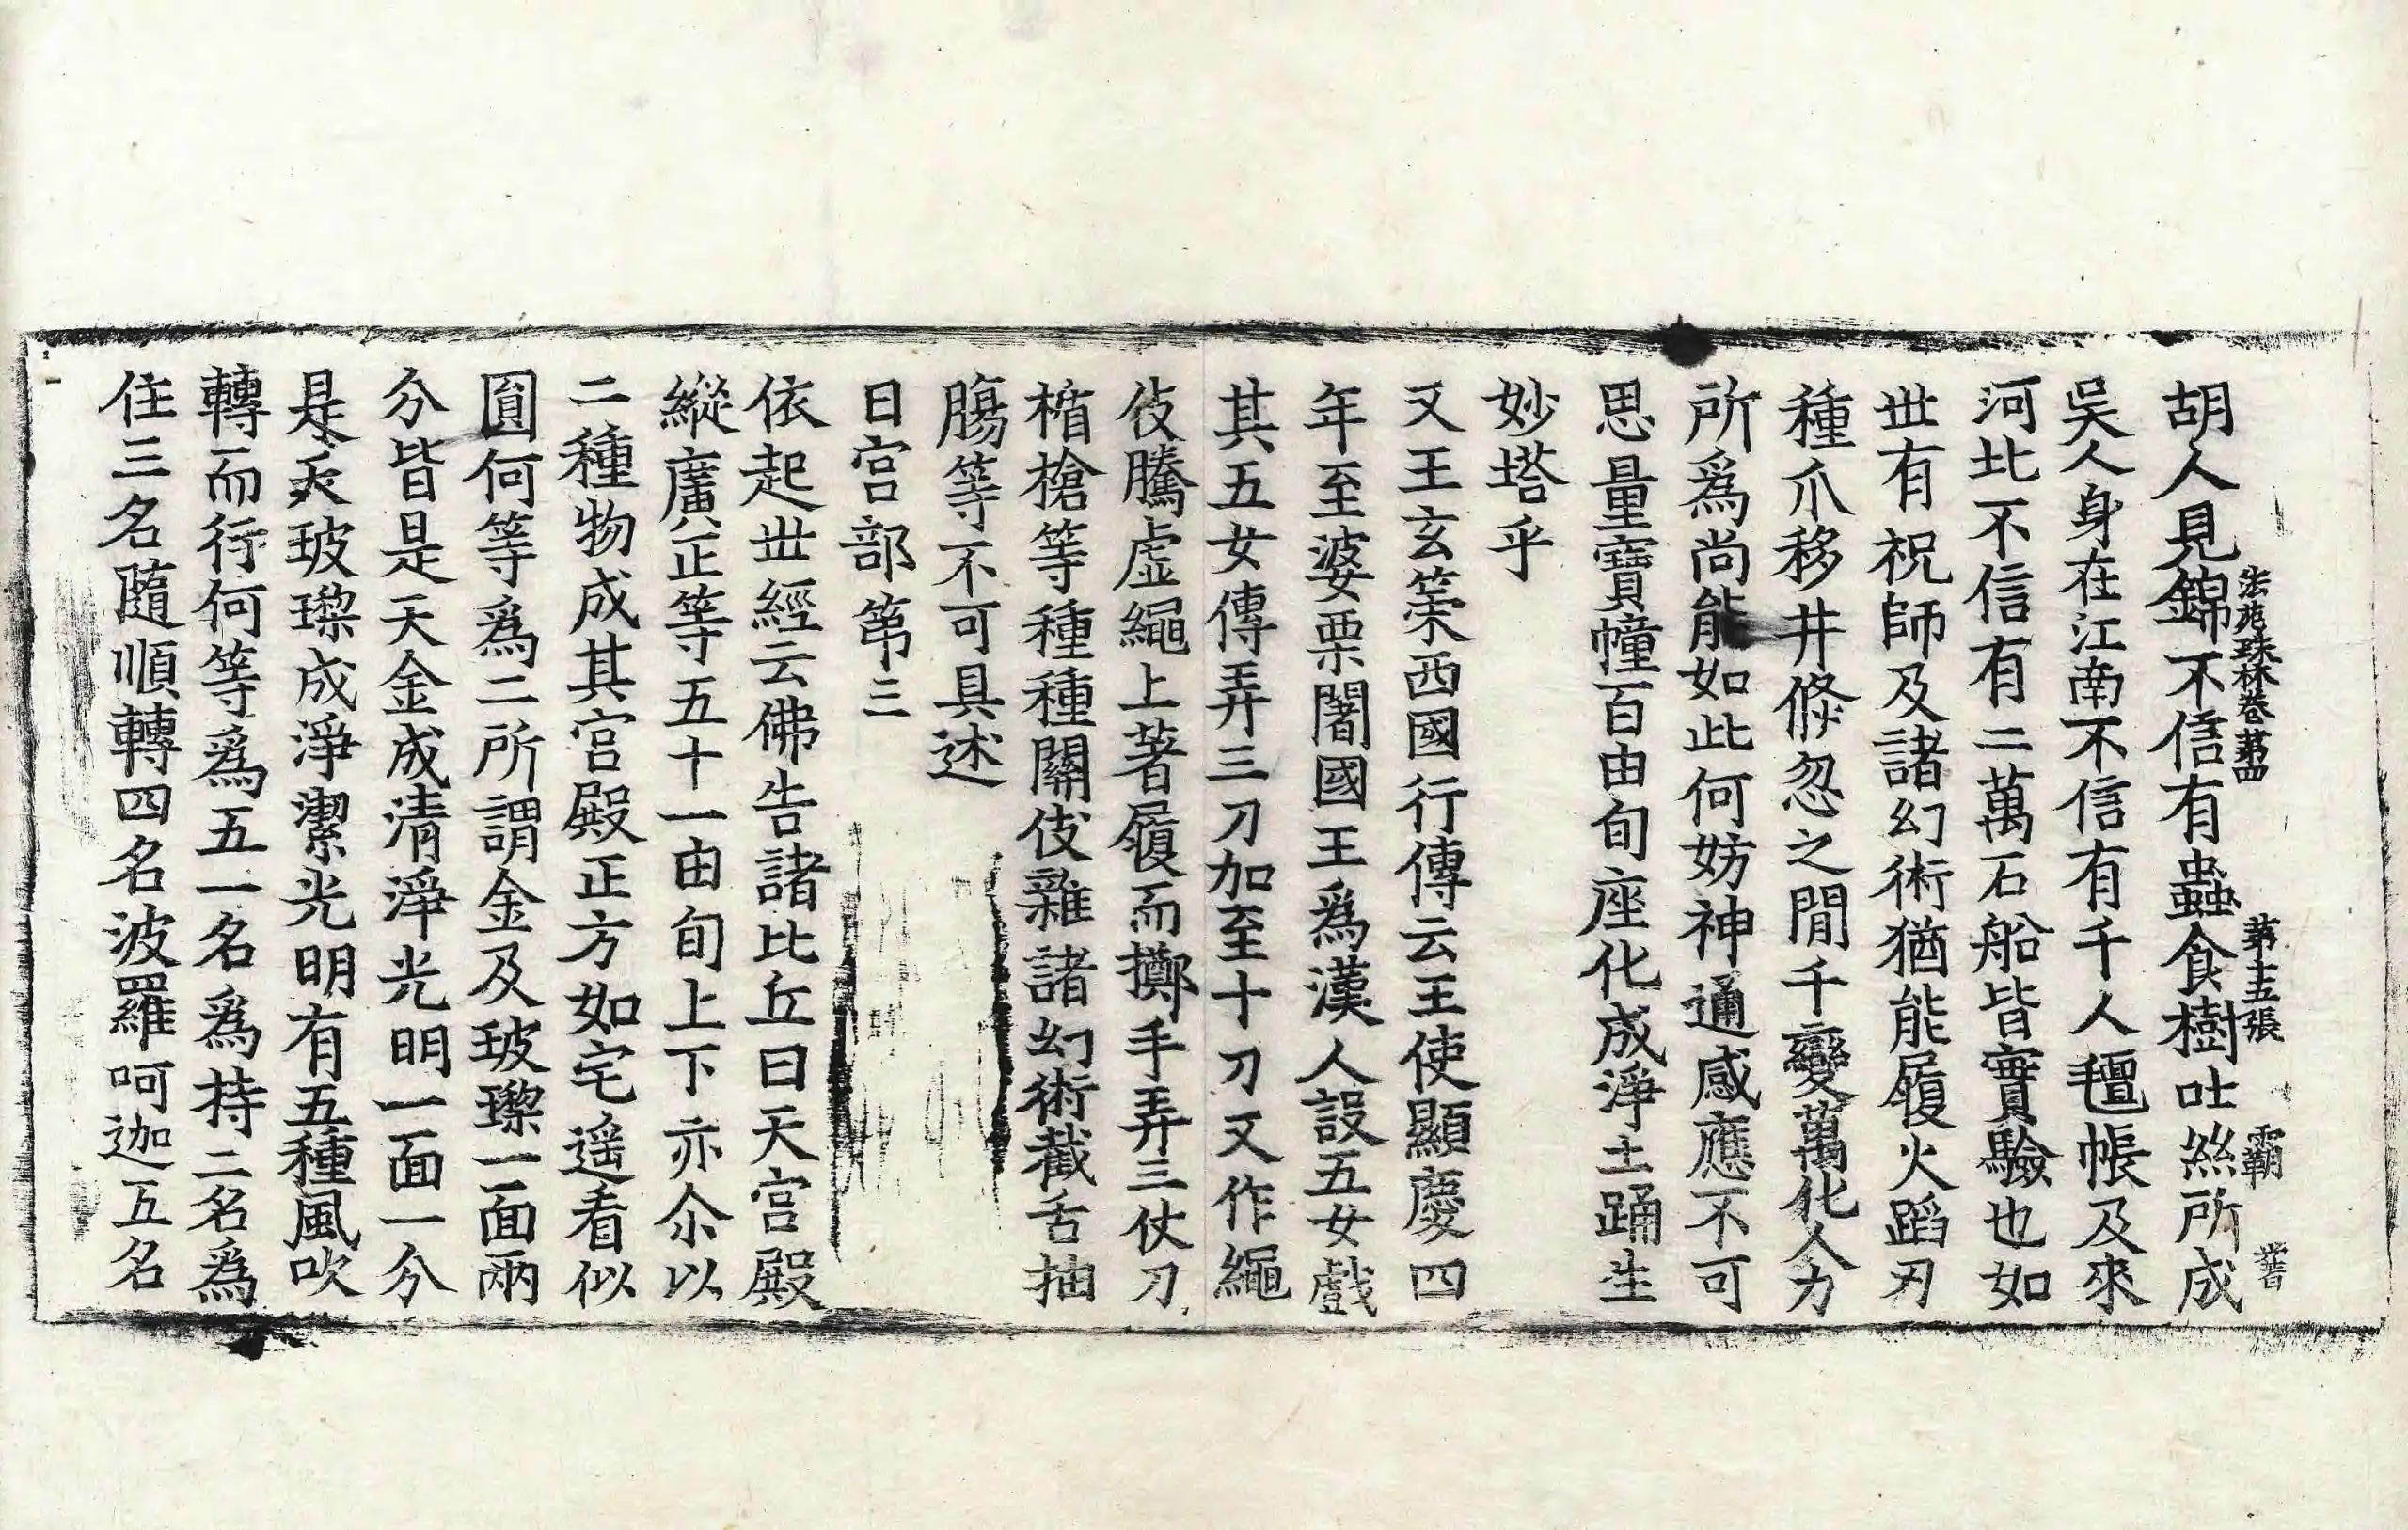 法苑珠林卷第四　第十五張　霸
胡人見錦不信有蟲食樹吐絲所成
吳人身在江南不信有千人氊帳及來
河北不信有二萬石船皆實驗也如
世有祝師及諸幻術猶能履火蹈刃
種爪移井倏忽之閒千變萬化人力
所爲尚能如此何妨神通感應不可
思量寶幢百由旬座化成淨土踊生
妙塔乎
又王玄策西國行傳云王使顯慶四
年至婆栗闍國王爲漢人設五女戲
其五女傳弄三刀加至十刀又作繩
伎騰虛繩上著履而擲手弄三仗刀
楯槍等種種關伎雜諸幻術截舌抽
腸等不可具述
日宮部第三
依起世經云佛告諸比丘日天宮殿
縱廣正等五十一由旬上下亦尒以
二種物成其宮殿正方如宅遥看似
圓何等爲二所謂金及玻瓈一面兩
分皆是天金成清淨光明一面一分
是天玻瓈成淨潔光明有五種風吹
轉而行何等爲五一名爲持二名爲
住三名隨順轉四名波羅呵迦五名